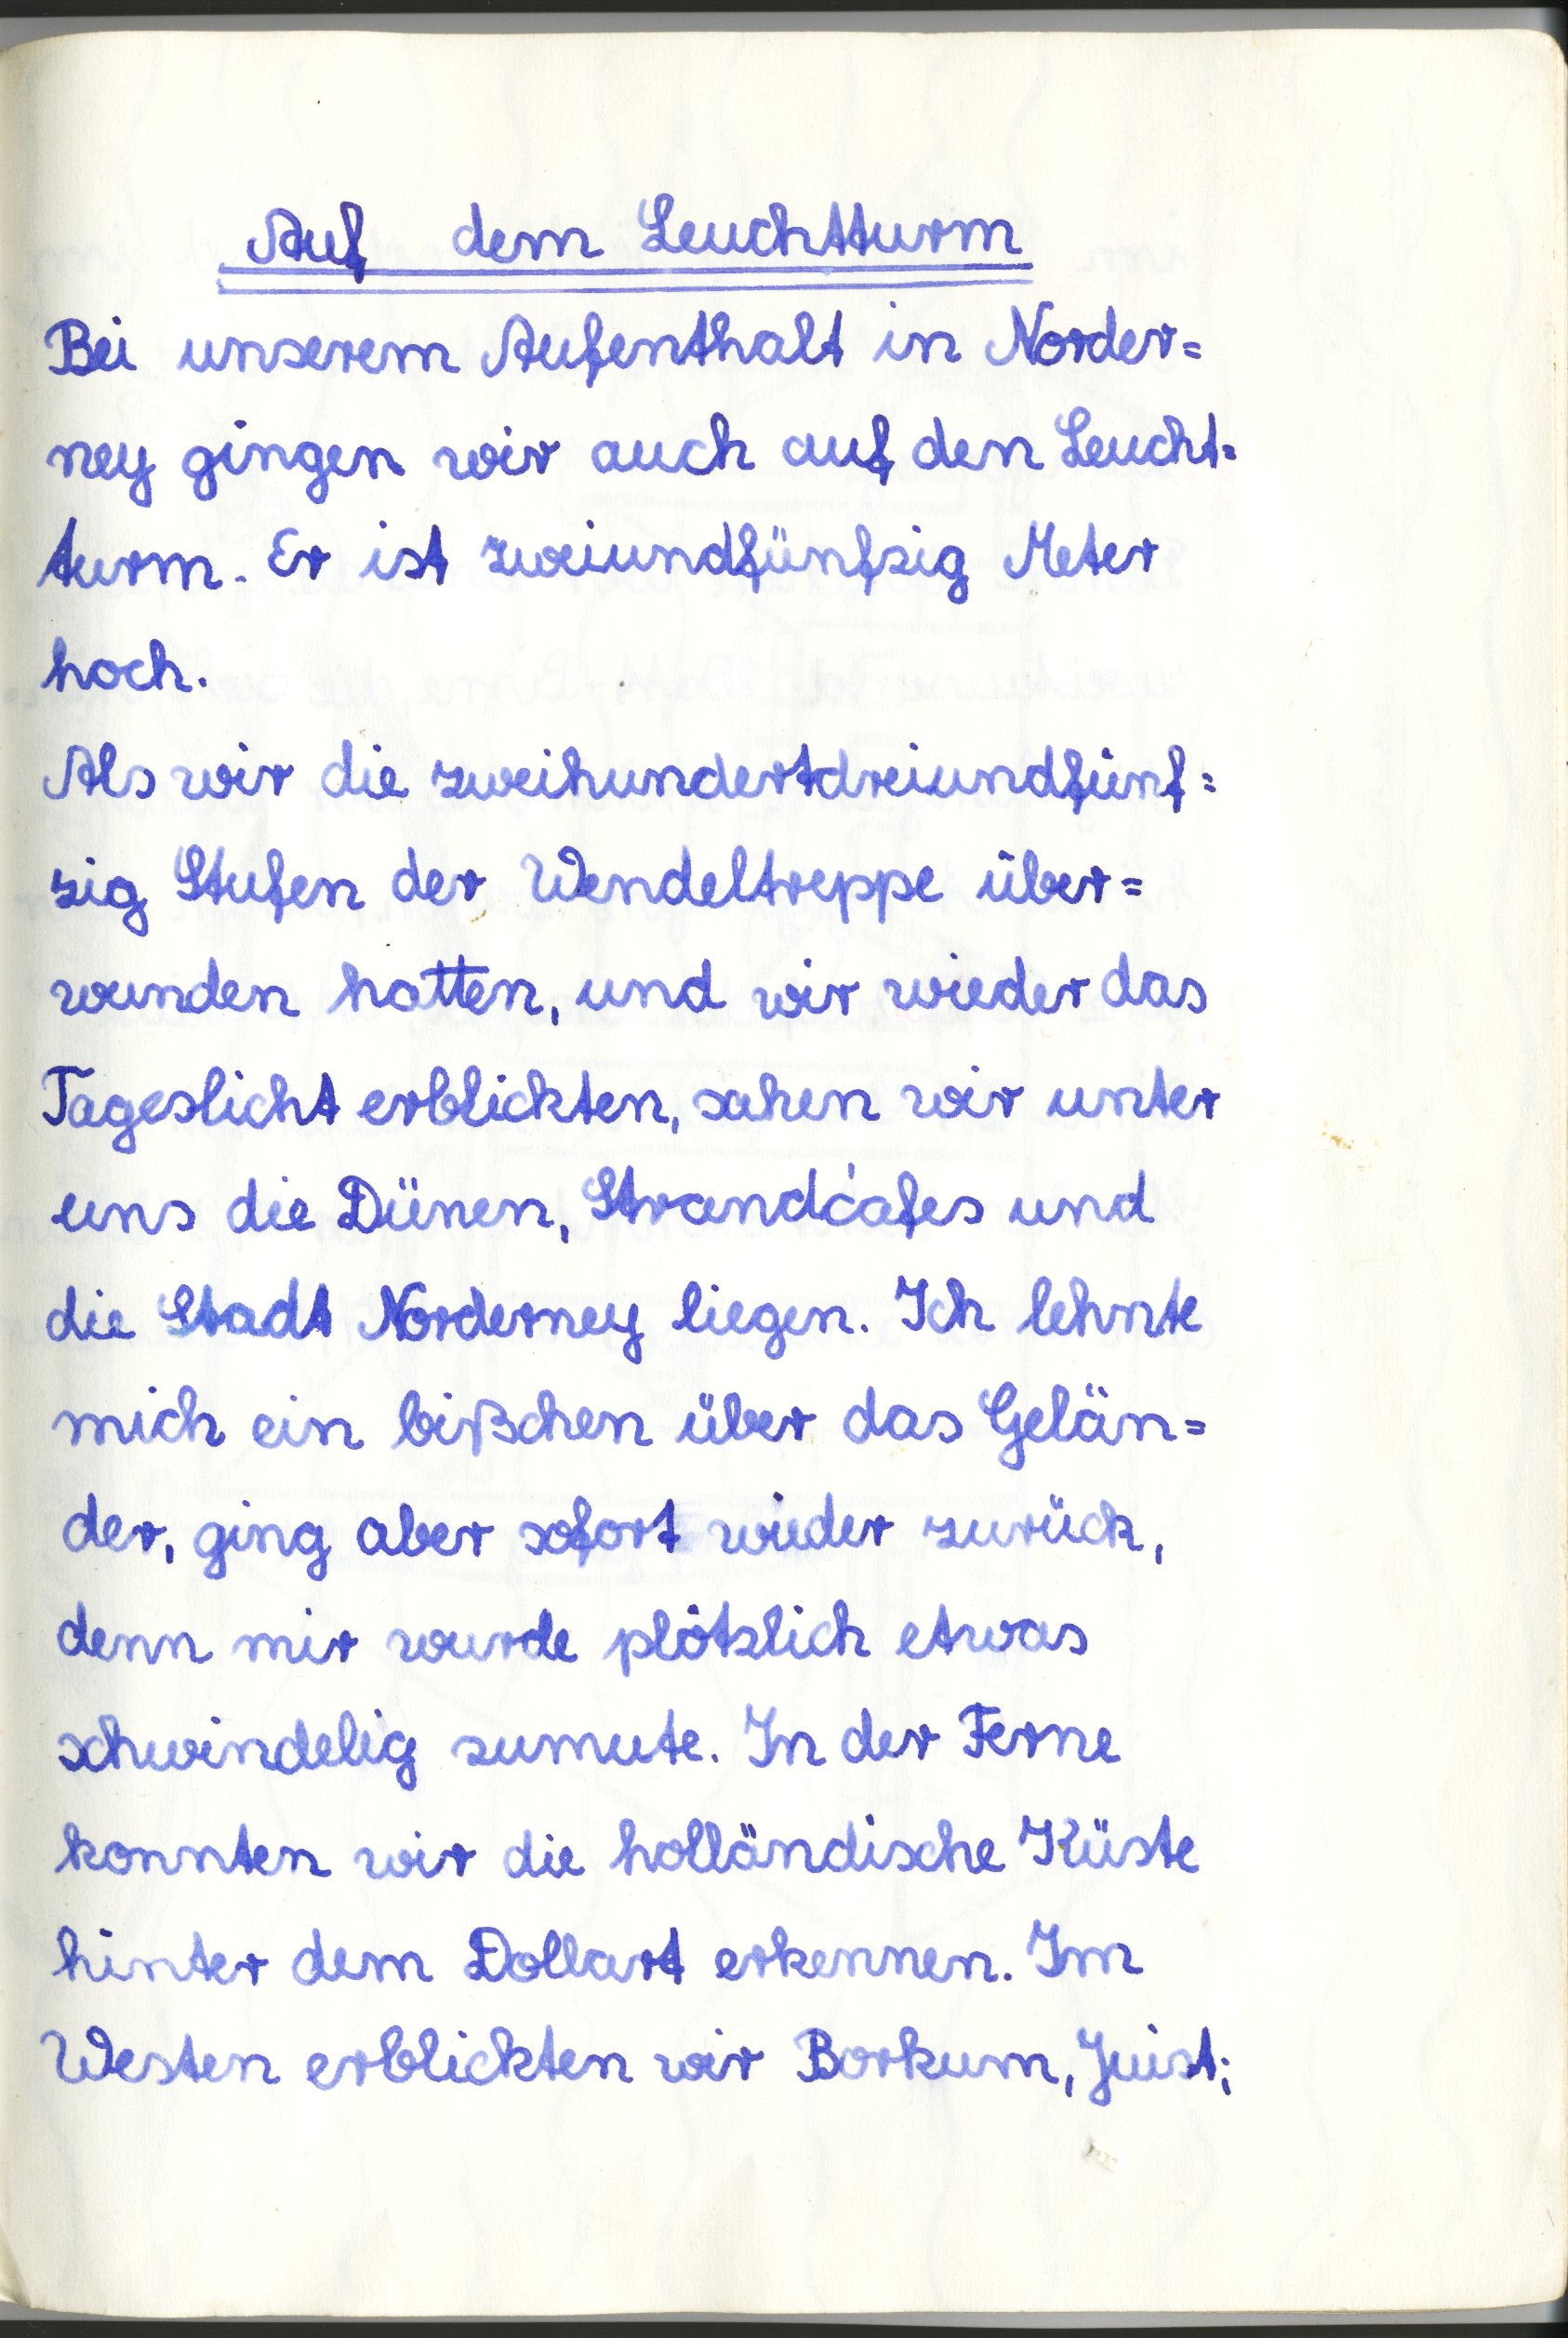 Auf dem Leuchtturm
Bei unserem Aufenthalt in Norder=
ney gingen wir auch auf den Leucht=
turm. Er ist zweiundfünfzig Meter
hoch.
Als wir die zweihundertdreiundfünf=
zig Stufen der Wendeltreppe über=
wunden hatten, und wir wieder das
Tageslicht erblickten, sahen wir unter
uns die Dünen, Strandćafes und
die Stadt Norderney liegen. Ich lehnte
mich ein bißchen über das Gelän=
der, ging aber sofort wieder zurück,
denn mir wurde plötzlich etwas
schwindelig zumute. In der Ferne
konnten wir die holländische Küste
hinter dem Dollart erkennen. Im
Westen erblickten wir Borkum, Juist;